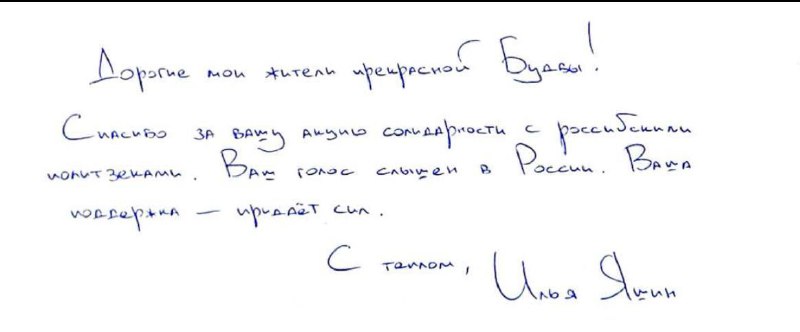 Дорогие мои жители прекрасной Будвы!
Спасибо за вашу акцию солидарности с российскими
политзеками. Ваш голос слышен в России. Ваша
поддержка — придаёт сил.
С теплом, Илья Яшин